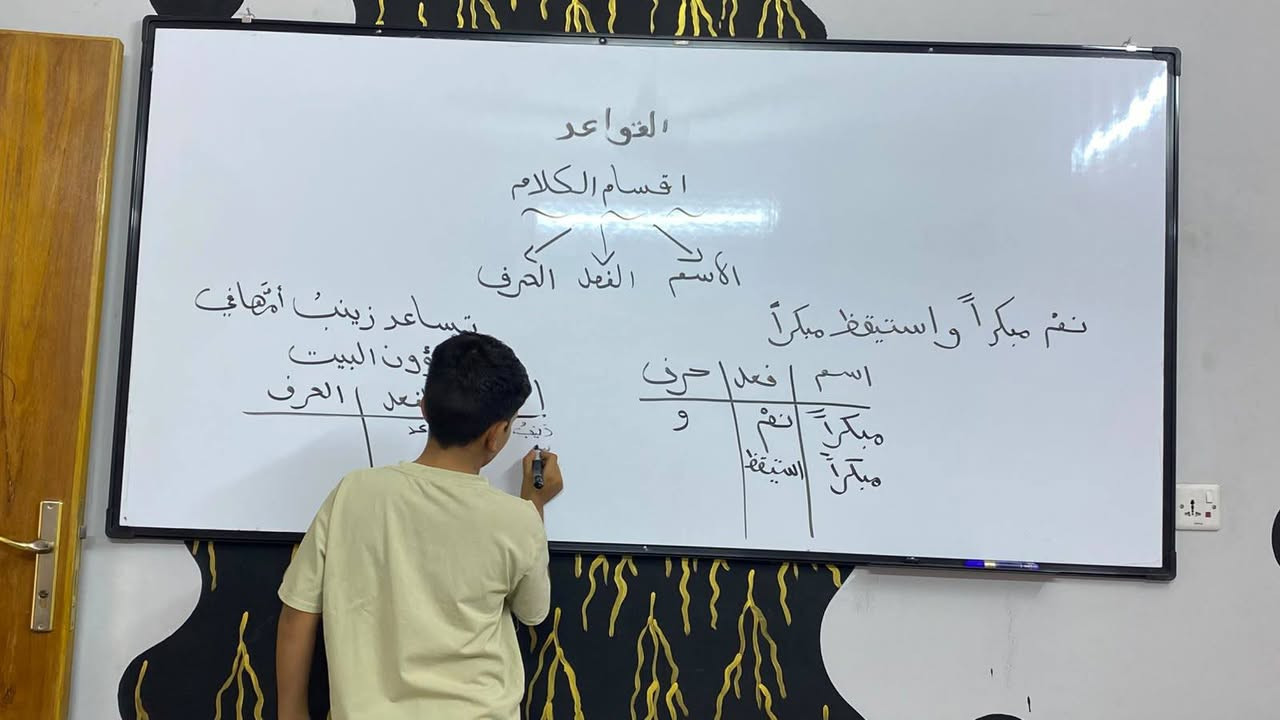 القواعد
اقسام الكلام
الاسم الفعل الحرف
نمْ مبكراً و استيقظ مبكراً
اسم فعل حرف
مبكراً نمْ و
مبكراً استيقظ
تساعد زينبُ أمَّها في
البيت
الحرف
زينبُ